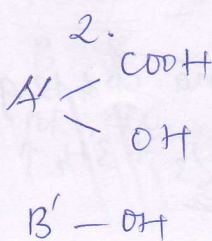 2.
COOH
A'
OH
B' — OH